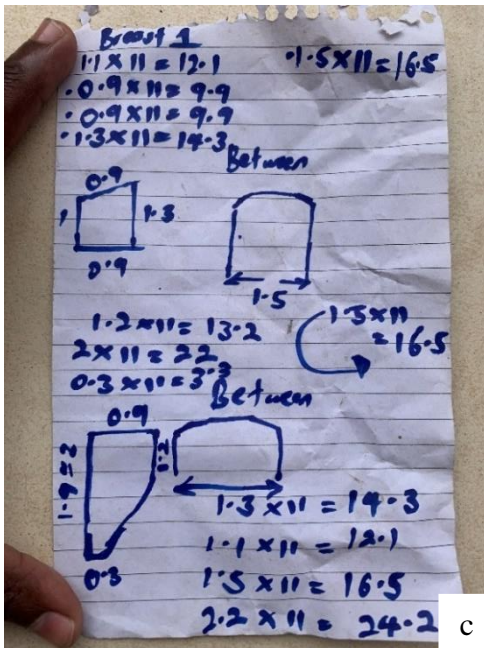 Breast 1
1.1 x 11 = 12.1
.1.5 x 11 = 16.5
.0.9 x 11 = 9.9
.0.9 x 11 = 9.9
.1.3 x 11 = 14.3
Between
0.9
1
1.3
0.9
1.5
1.2 x 11 = 13.2
2 x 11 = 22
0.3 x 11 = 3.3
1.5 x 11
= 16.5
Between
0.9
1.9 = 2
1.2
0.3
1.3 x 11 = 14.3
1.1 x 11 = 12.1
1.5 x 11 = 16.5
2.2 x 11 = 24.2
c